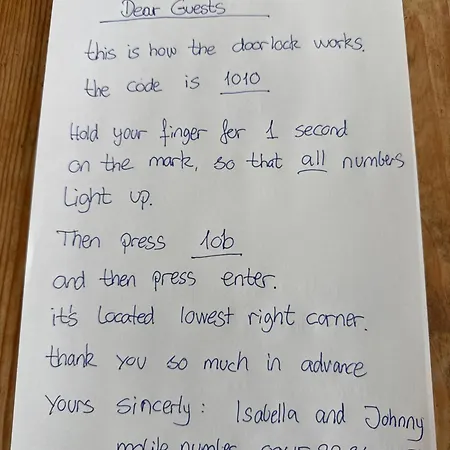 Dear Guests
this is how the doorlock works.
the code is 1010
Hold your finger for 1 second
on the mark, so that all numbers
Light up.
Then press 10b
and then press enter.
it's Located lowest right corner.
thank you so much in advance
Yours sincerly: Isabella and Johnny
mobile number